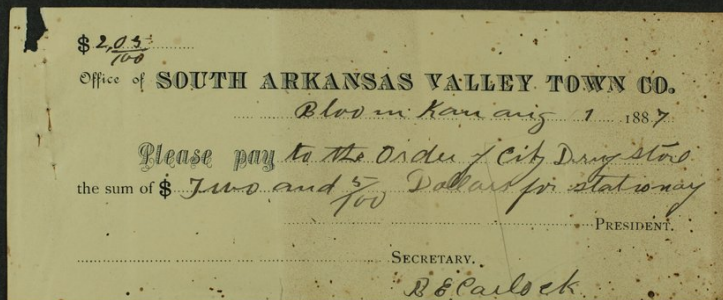 $ 2,05/100
Office of SOUTH ARKANSAS VALLEY TOWN CO.
Bloom Kan aug 1 1887
Please pay to the Order of City Drug store
the sum of $ Two and 5/100 Dollars for stationay
PRESIDENT.
SECRETARY.
B E Carlock